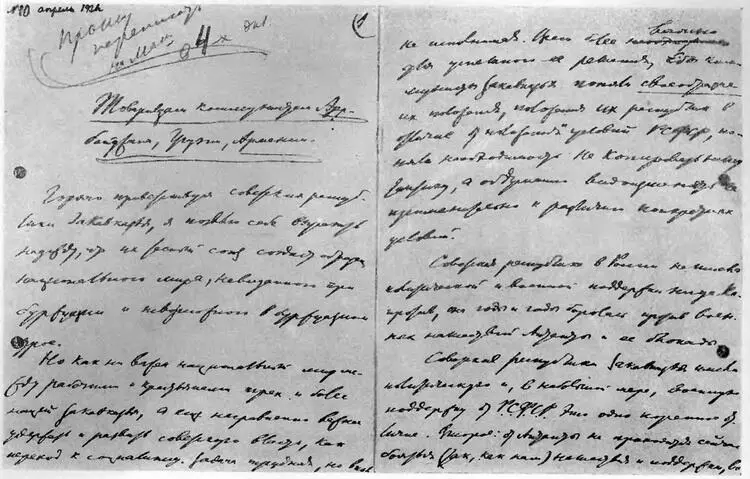 №10 апрель 1921
Прошу
переписать
на маш.
4 х экз
Товарищам коммунистам Азер-
байджана, Грузии, Армении.
Горячо приветствуя советские респуб-
лики Закавказья, я позволю себе выразить
надежду, что их тесный союз создаст образец
национального мира, невиданного при
буржуазии и невозможного в буржуазном
строе.
Но как ни важен национальный мир ме-
жду рабочими и крестьянами
Закавказья, а еще несравненно важнее
удержать и развить советскую власть, как
переход к социализму. Задача трудная, но впол-
не исполнимая. Всего более важно
для успешного ее решения, чтобы ком-
мунисты Закавказья поняли своеобразие
их положения, положения их республик в
отличие от положения и условий РСФСР, по-
няли необходимость не копировать нашу
тактику, а обдуманно видоизменять ее
применительно к различию конкретных
условий.
Советская республика в России не имела
политической и военной поддержки
она годы и годы боролась против воен-
ных нашествий Антанты и ее блокады.
Советские республики Закавказья имели
политическую и, в небольшой мере, военную
поддержку от РСФСР. Это одно коренное от-
личие. Второе: от Антанты не приходится сейчас
бояться (так, как нам) нашествия и поддержки, во